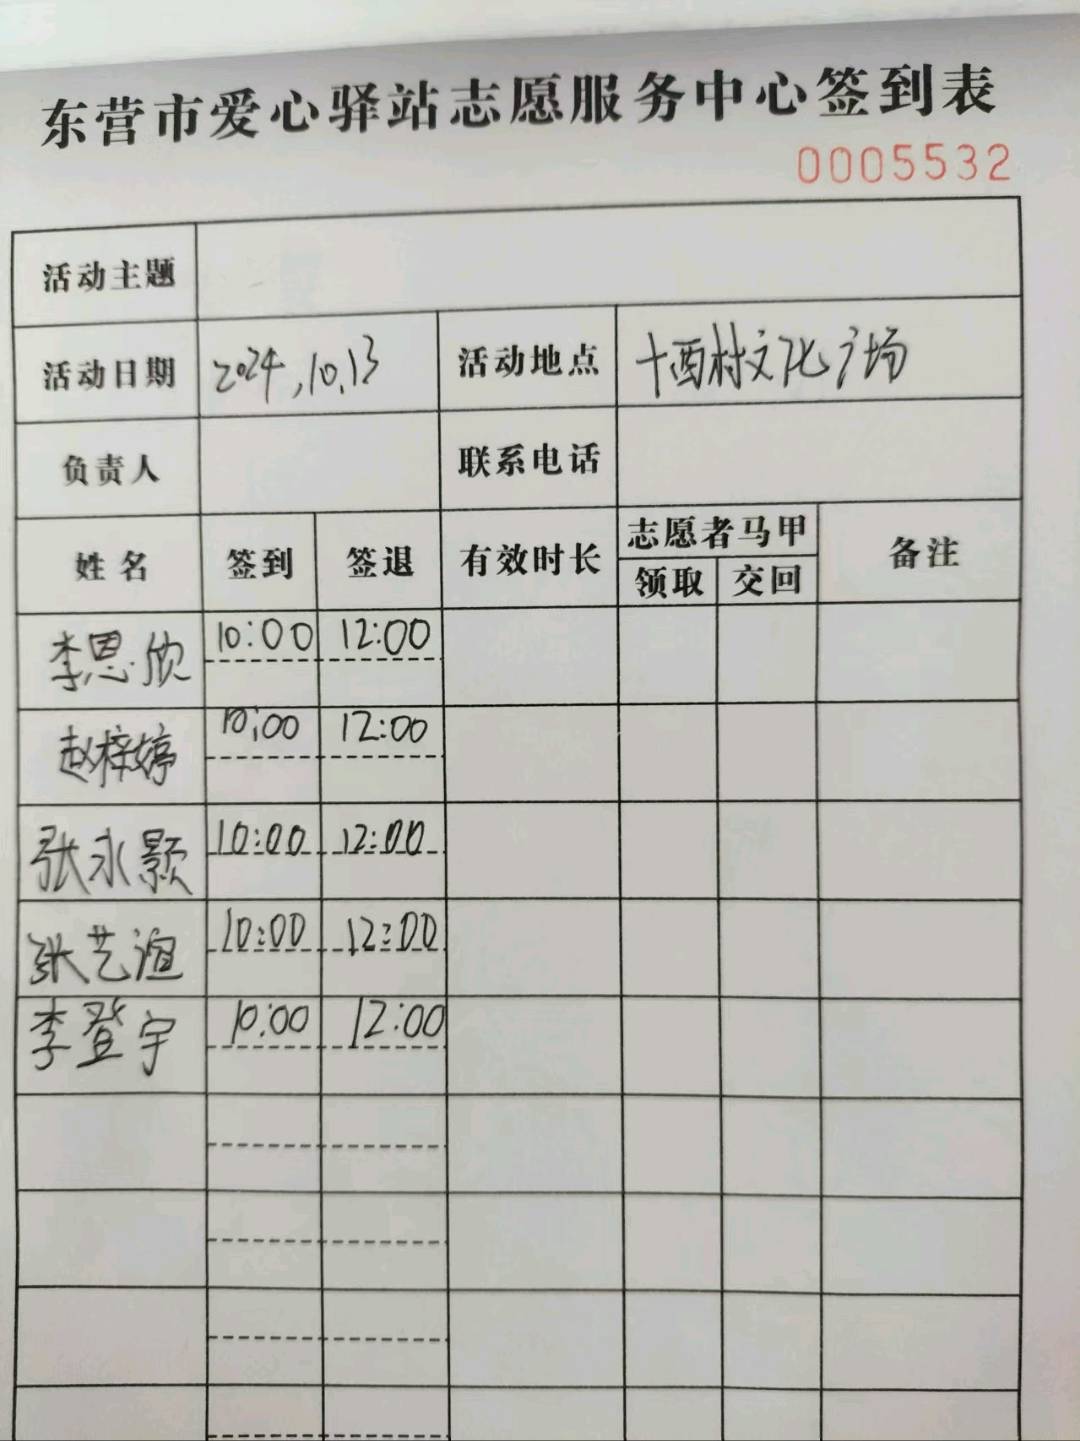 东营市爱心驿站志愿服务中心签到表
0005532
活动主题
活动日期 2024,10,13 活动地点 十西村文化广场
负责人 联系电话
姓名 签到 签退 有效时长 志愿者马甲 备注
领取 交回
李思欣 10:00 12:00
赵梓婷 10:00 12:00
张永颢 10:00 12:00
张艺谊 10:00 12:00
李登宇 10:00 12:00